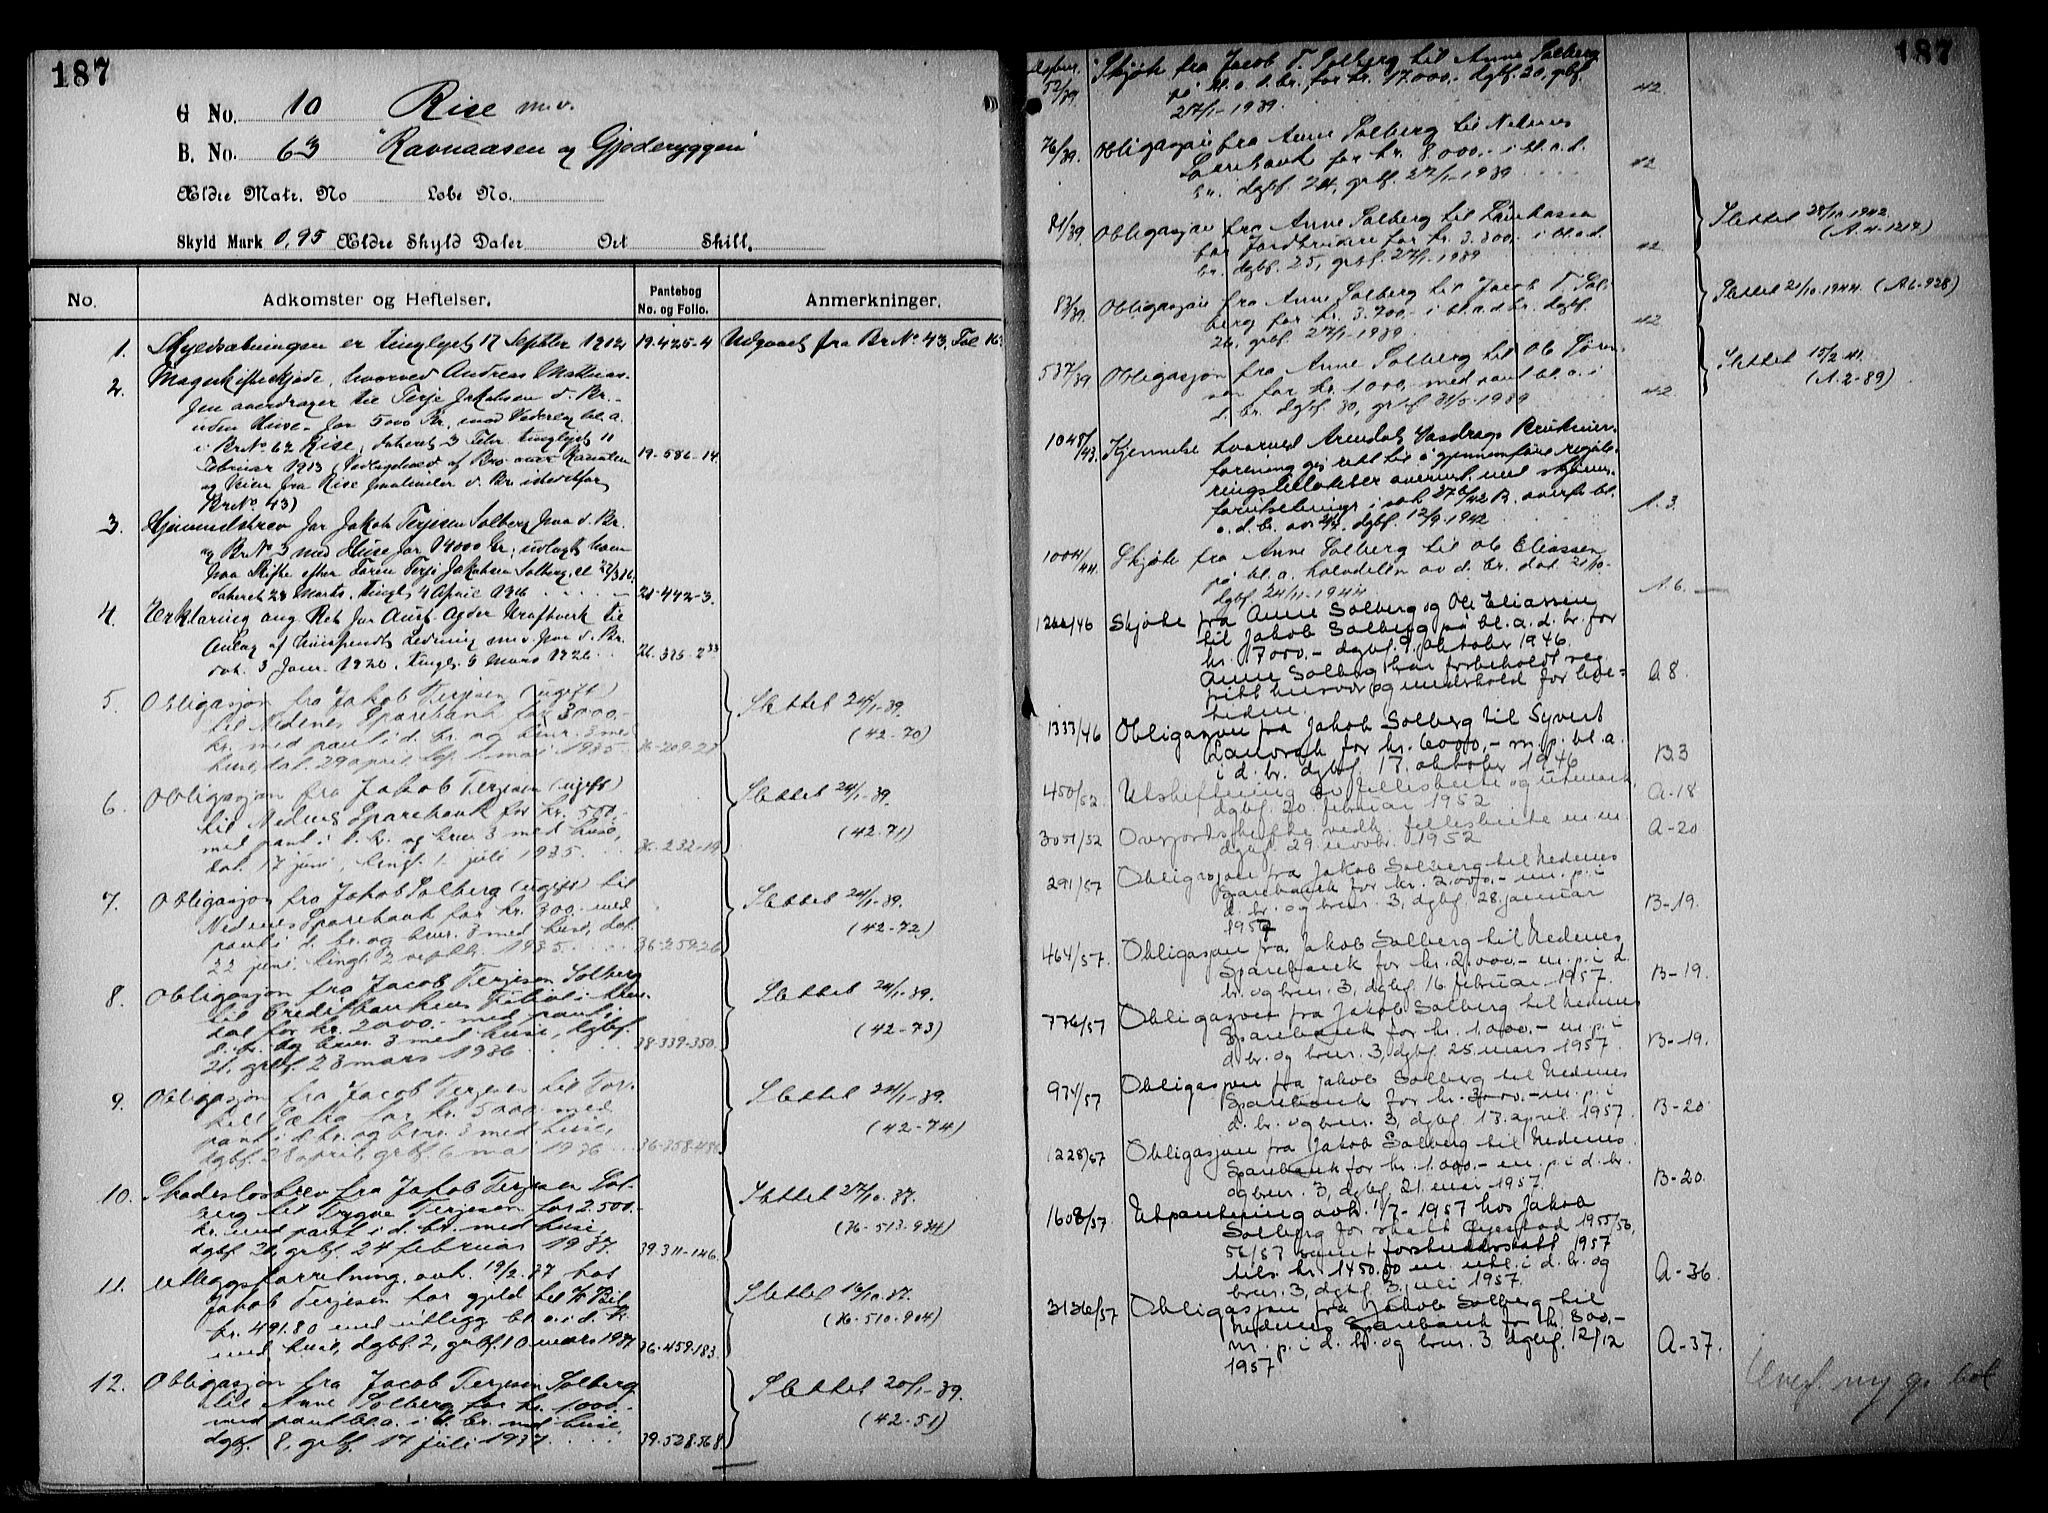 187
G No. 10 Rise m.v.
B. No. 63 "Ravnaasen og Gjederyggen"
Ældre Matr. No Løbe No.
Skyld Mark 0,95 Ældre Skyld Daler Ort Skill.
No. Adkomster og Heftelser. Pantebog No. og Folio. Anmerkninger.
1. Skyldsætningen er tinglyst 17 Septbr 1912 19-425-4 Udgaaet fra Br No 43, Fol 16
2. Mageskifteskjøde, hvorved Andreas Mathias-
sen overdrager til Terje Jakobsen d. Br.
uden Huse for 5000 Kr, mod Vederlag bl.a.
i Br No 62 Rise, dateret 3 Febr. tinglyst 11
Februar 1913 19-586-14
og Veien fra Rise d. Br istedetfor
Br No 43)
3. Hjemmelsbrev for Jakob Terjesen Solberg paa d. Br.
og Br No 3 med Huse for 14000 Kr, udlagt ham
paa Skifte efter Faren Terje Jakobsen Solberg
dateret 28 Marts, tingl. 4 April 1916 21-442-3.
4. Erklæring ang Ret for Aust-Agder Kraftverk til
Anlæg af Ledning m.v. paa d. Br.
dat. 3 Janr. 1920, tingl. 5 Mars 1920
5. Obligasjon fra Jakob Terjesen (ugift)
til Nedenes Sparebank for 3000,-
kr. med pant i d. br. og brnr. 3 med
huse, dat. 29 april, tgl. 1 mai 1935. Slettet 24/1-39.
(42-70)
6. Obligasjon fra Jakob Terjesen (ugift)
til Nedenes Sparebank for kr. 550,-
med pant i d. br. og brnr. 3 med huse,
dat. 17 juni, tingl. 1. juli 1935. 36-232-19 Slettet 24/1-39.
(42-71)
7. Obligasjon fra Jakob Solberg (ugift) til
Nedenes Sparebank for kr. 300.- med
pant i d. br. og brnr. 3 med huse, dat.
22 juni, tingl. 2 septbr. 1935. 36-259-26 Slettet 24/1-39.
(42-72)
8. Obligasjon fra Jacob Terjesen Solberg
til Creditbankens Filial i Aren-
dal for kr. 2000.- med pant i
d. br. og brnr. 3 med huse, dgbf.
21, grbf. 23 mars 1936 38-339-350. Slettet 24/1-39.
(42-73)
9. Obligasjon fra Jacob Terjesen til Tor-
kell for kr. 5000.- med
pant i d. br. og brnr. 3 med huse,
dgbf. 28 april, grbf. 6 mai 1936 Slettet 24/1-39.
(42-74)
10. Skadesløsbrev fra Jakob Terjesen Sol-
berg til Trygve Terjesen for 2.500.-
kr. med pant i d. br. med huse,
dgbf. 20, grbf. 24 februar 1937. 39-311-146. Slettet 27/10-37.
(36-513-924)
11. Utleggsforretning avh. 19/2-37 hos
Jakob Terjesen for gjeld til
kr. 491.80 med utlegg bl.a. i d. br.
med huse, dgbf. 2, grbf. 10 mars 1937 36-459-183. Slettet 16/10-37.
(36-510-904)
12. Obligasjon fra Jacob Terjesen Solberg
til Anne Solberg for kr. 1000.-
med pant bl.a. i d. br. med huse,
dgbf. 8, grbf. 17 juli 1937. 39-528-568. Slettet 20/1-39.
(42-51)
187
52/39. Skjøte fra Jacob T. Solberg til Anne Solberg
på bl.a. d. br. for kr. 17.000.- dgbf. 20, grbf.
27/1-1939. 42.
76/39. Obligasjon fra Anne Solberg til Nedenes
Sparebank for kr. 8.000.- i bl.a. d.
br. dgbf. 24, grbf. 27/1-1939 42
81/39. Obligasjon fra Anne Solberg til Lånekassen
for Jordbrukere for kr. 3.300.- i bl.a. d.
br. dgbf. 25, grbf. 27/1-1939 42 Slettet 28/11-1942
(A.4-1217)
83/39. Obligasjon fra Anne Solberg til Jacob T. Sol-
berg for kr. 3.700.- i bl.a. d. br. dgbf.
26, grbf. 27/1-1939. 42 Slettet 21/10-1944. (A6-928)
537/39 Obligasjon fra Anne Solberg til Ole
for kr. 1000.- med pant bl.a. i
d. br. dgbf. 30, grbf. 31/5-1939 42 Slettet 15/2-41.
(A.2-89)
1048/43. Kjennelse hvorved Arendals Vasdrags Brukseier-
forening gis rett til å gjennemføre regule-
ringstiltakelser overens. med skjønns-
forutsetninger i sak 27B/42 B. overfor bl.
a. d. br. dgbf. 12/9-1942 A.3.
1004/44. Skjøte fra Anne Solberg til Ole Eliassen
på bl.a. halvdelen av d. br. dat. 21/10-
dgbf. 24/11-1944 A.6.
/46 Skjøte fra Anne Solberg og Ole Eliassen
til Jakob Solberg på bl.a. d. br. for
kr. 7000.- dgbf. 9. oktober 1946.
Anne Solberg har forbeholdt seg
fritt husvær og underhold for live-
tiden. A 8.
1333/46 Obligasjon fra Jakob Solberg til Syvert
for kr. 6000,- m. p. bl.a.
i d. br. dgbf. 17. oktober 1946 B.3
450/52. Utskiftning av fellesbeite og utmark
dgbf. 20. februar 1952 A-18
3051/52 Overjordskifte vedk. fellesbeite m.m.
dgbf. 29. novbr. 1952 A-20
291/57 Obligasjon fra Jakob Solberg til Nedenes
Sparebank for kr. 2.000,- m. p. i
d. br. og brnr. 3, dgbf. 28. januar
1957 B-19.
464/57. Obligasjon fra Jakob Solberg til Nedenes
Sparebank for kr. 2.000.- m. p. i d.
br. og brnr. 3, dgbf. 16. februar 1957. B-19.
776/57 Obligasjon fra Jakob Solberg til Nedenes
Sparebank for kr. 1.000.- m. p. i
d. br. og brnr. 3, dgbf. 25. mars 1957. B-19.
974/57 Obligasjon fra Jakob Solberg til Nedenes
Sparebank for kr. 3000.- m. p. i
d. br. og brnr. 3, dgbf. 13. april 1957. B-20.
1228/57 Obligasjon fra Jakob Solberg til Nedenes
Sparebank for kr. 1.000,- m. p. i d. br.
og brnr. 3, dgbf. 21. mai 1957. B-20.
1608/57 Utpantning avh. 1/7-1957 hos Jakob
Solberg for skatt Øyestad 1955/56,
56/57 samt forskuddsskatt 1957
tils. kr. 1450.00 m. utl. i d. br. og
brnr. 3, dgbf. 3. juli 1957. A-36.
3136/57 Obligasjon fra Jakob Solberg til
Nedenes Sparebank for kr. 800,-
m. p. i d. br. og brnr. 3 dgbf. 12/12
1957 A-37.
Overf. ny gr. bok